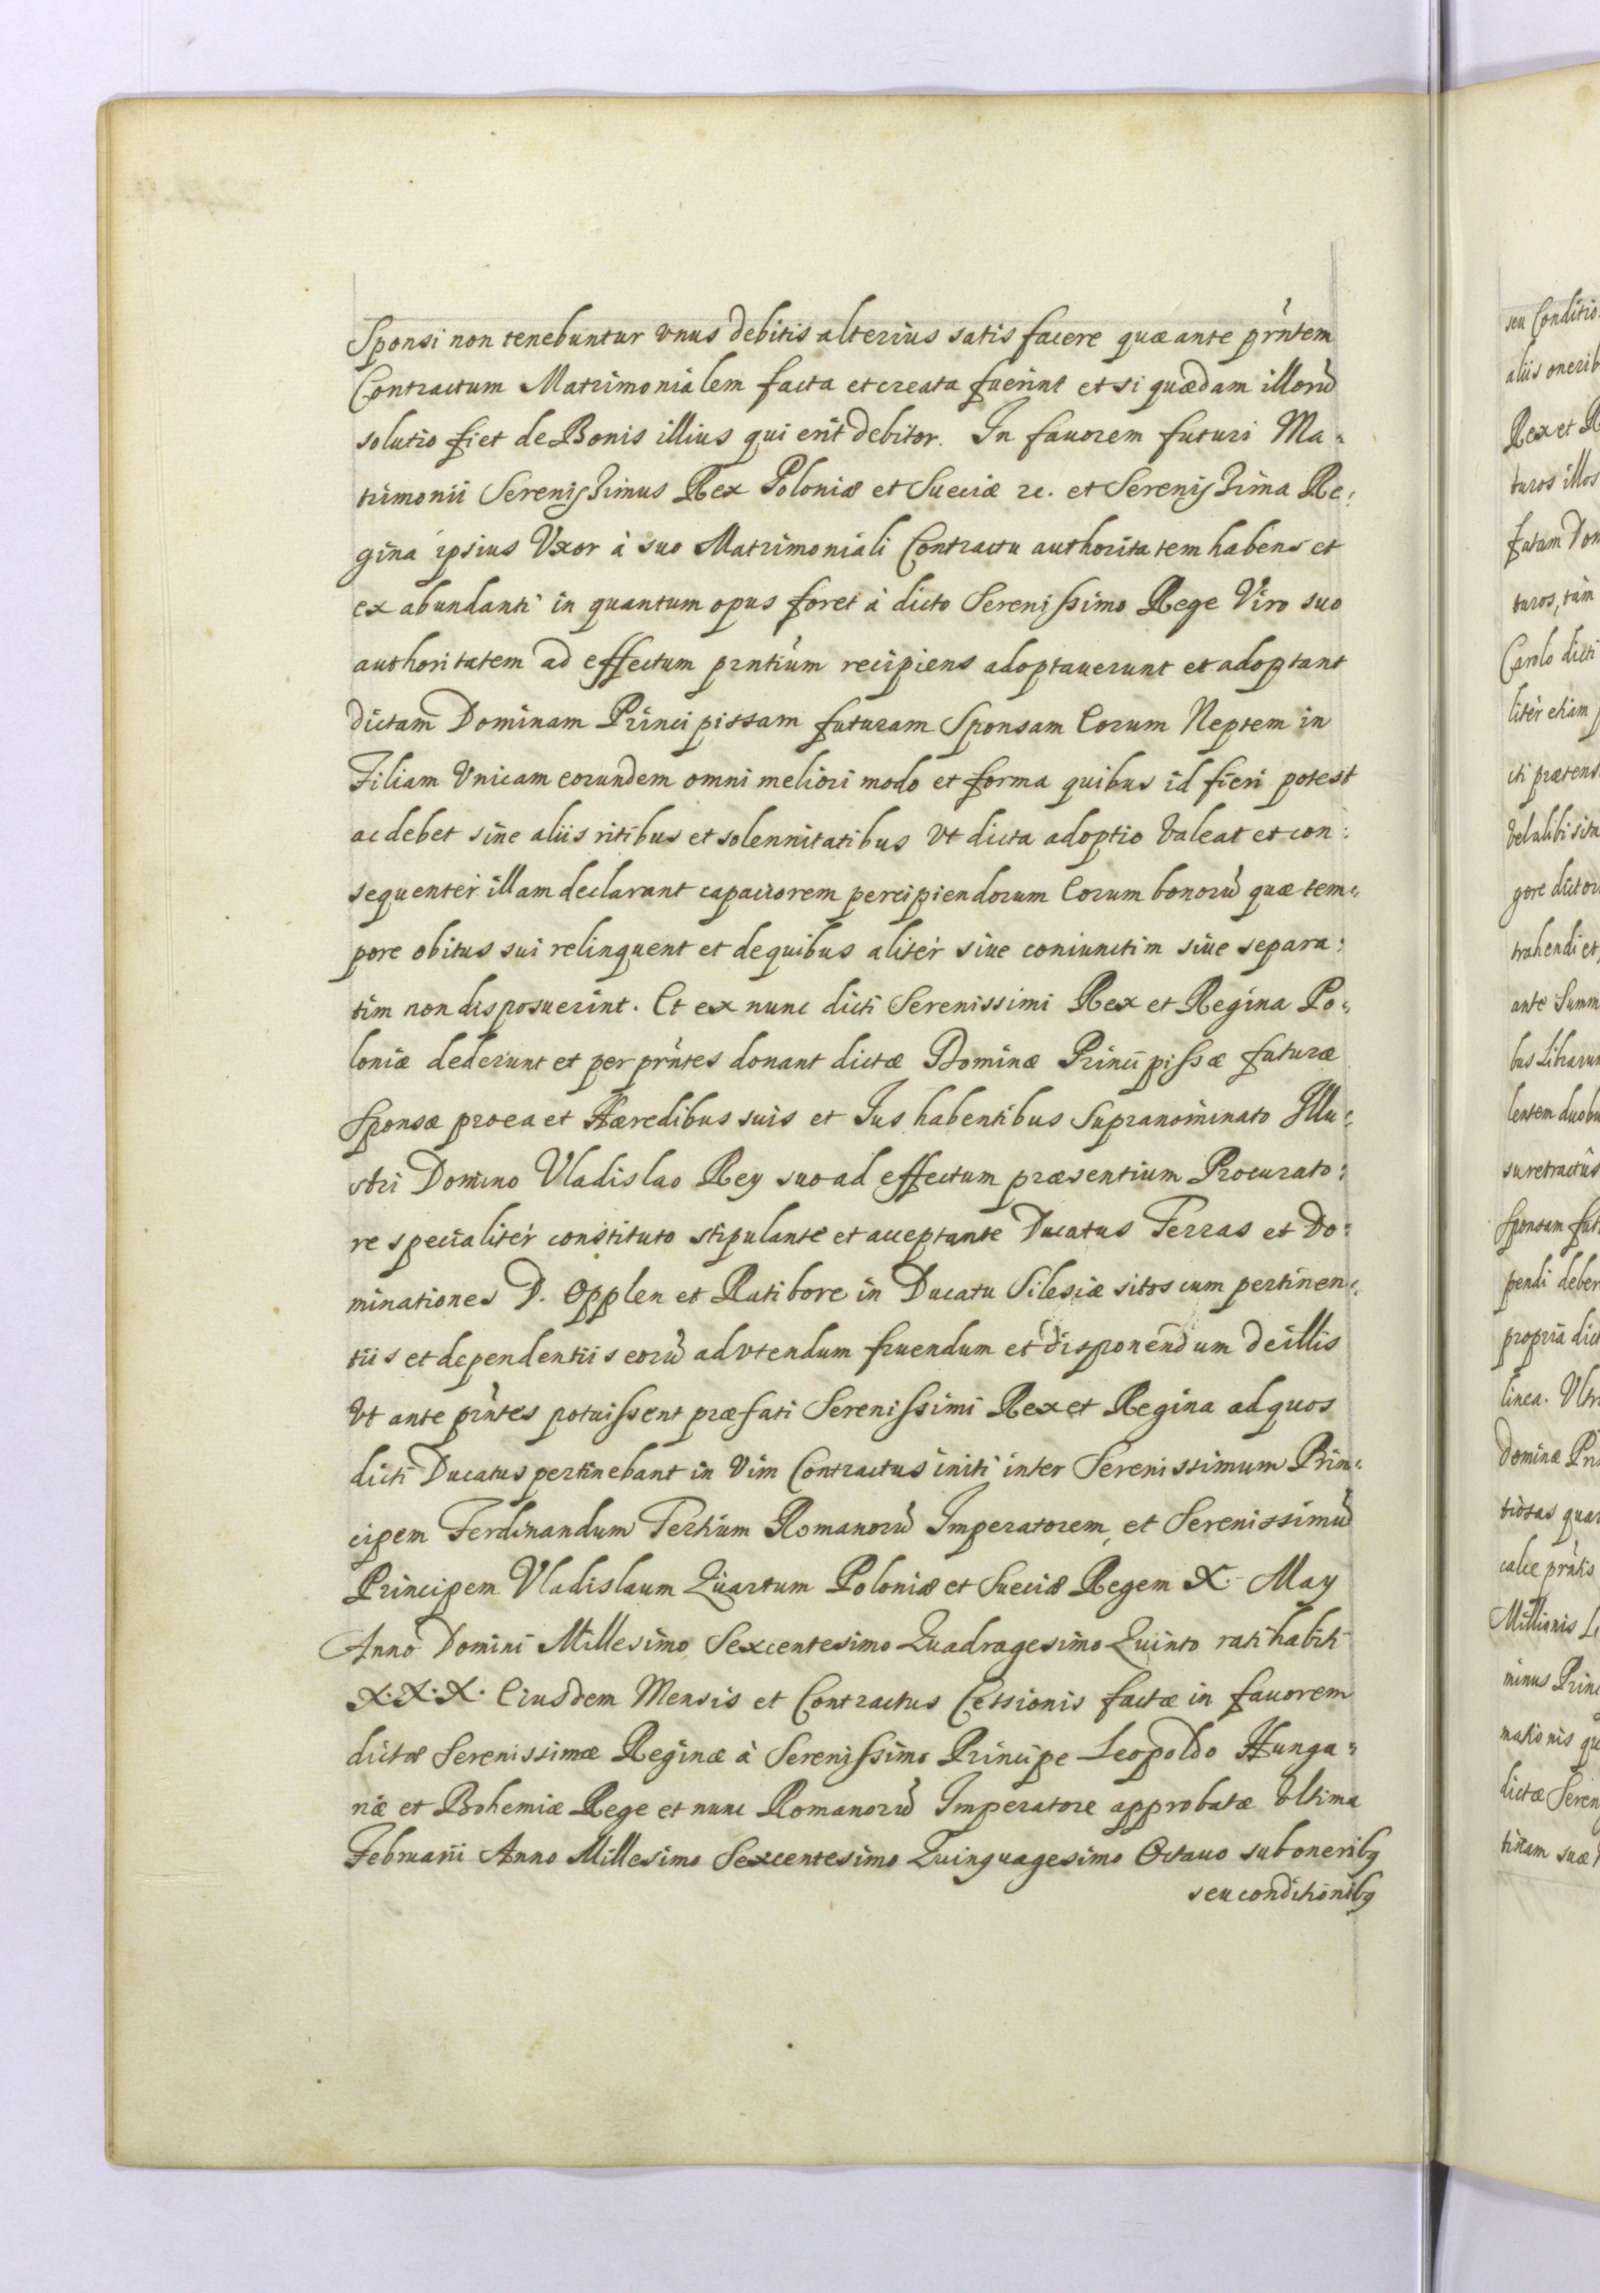 Sponsi non tenebuntur vnus debitis alterius satis facere quæ ante prñtem
Contractum Matrimonialem facta et creata fuerint et si quædam illorũ
solutio fiet de Bonis illius qui erit debitor. In fauorem futuri Ma-
trimonii Serenissimus Rex Poloniæ et Sueciæ &c. et Serenissima Re-
gina ipsius Vxor à suo Matrimoniali Contractu authoritatem habens et
ex abundanti in quantum opus foret à dicto Serenissimo Rege Viro suo
authoritatem ad effectum prntium recipiens adoptauerunt et adoptant
dictam Dominam Principissam futuram Sponsam Eorum Neptem in
Filiam Vnicam eorundem omni meliori modo et forma quibus id fieri potest
ac debet sine aliis ritibus et solennitatibus Vt dicta adoptio Valeat et con-
sequenter illam declarant capaciorem percipiendorum Eorum bonorũ quæ tem-
pore obitus sui relinquent et de quibus aliter siue coniunctim siue separa-
tim non disposuerint. Et ex nunc dicti Serenissimi Rex et Regina Po-
loniæ dederunt et per prñtes donant dictæ Dominæ Principissæ futuræ
Sponsæ pro ea et Hæredibus suis et Jus habentibus Supranominato Illu-
stri Domino Vladislao Rey suo ad effectum præsentium Procurato-
re specialiter constituto stipulante et acceptante Ducatus Terras et Do-
minationes D. Opplen et Ratibore in Ducatu Silesiæ sitos cum pertinen-
tiis et dependentiis eorũ ad vtendum fruendum et disponendum de illis
Vt ante prñtes potuissent præfati Serenissimi Rex et Regina ad quos
dicti Ducatus pertinebant in Vim Contractus initi inter Serenissimum Prin-
cipem Ferdinandum Tertium Romanorũ Imperatorem et Serenissimũ
Principem Vladislaum Quartum Poloniæ et Sueciæ Regem X. May
Anno Domini Millesimo Sexcentesimo Quadragesimo Quinto ratihabiti
X.X.X. Eiusdem Mensis et Contractus Cessionis factæ in fauorem
dictæ Serenissimæ Reginæ à Serenissimo Principe Leopoldo Hunga-
riæ et Bohemiæ Rege et nunc Romanorũ Imperatore approbatæ Vltima
Februarii Anno Millesimo Sexcentesimo Quinquagesimo Octauo sub oneribq
seu conditionibq
seu Conditio
aliis onerib
Rex et R
turos illos
futam Don
turos, tàm
Carolo dicti
liter etiam p
cti prætens
Vel alibi sita
gore dictor
trahendi et
ante Summ
bus Librarum
lentem duobu
su retractûs
Sponsam fut
pendi deber
propria dict
linea. Vltr
Dominæ Pri
tiosas quar
calce prñtis
Millionis Li
minus Princ
mationis qu
dictæ Seren
tinam suæ